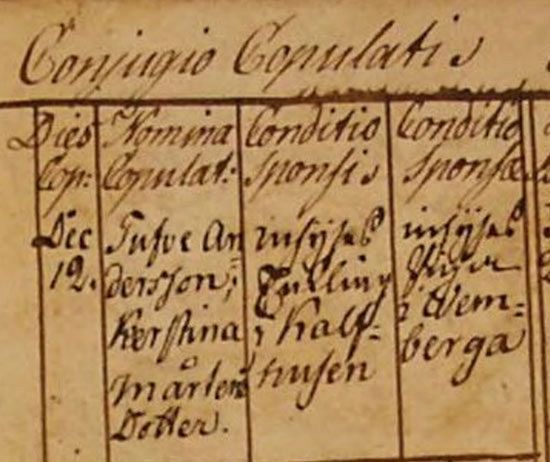 Conjugio Copulatis
Dies
Cop:
Nomina
Copulat:
Conditio
Sponsis
Conditio
Sponsæ
Dec
12.
Tufve An
dersson;
Kerstina
Mårtens
Dotter.
inhyses
i Kalf=
husen
inhyses
i Wem=
berga